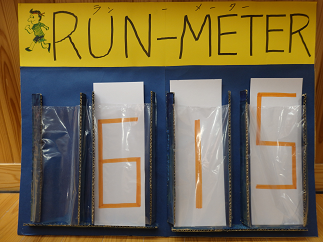 ランーメーター
RUN-METER
615